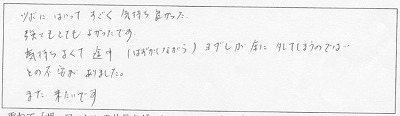 ツボにはいってすごく気持ち良かった。
強さもとてもよかったです。
気持ちよくて途中(はずかしながら)ヨダレが床に外してしまうのでは…
との不安がありました。
また来たいです